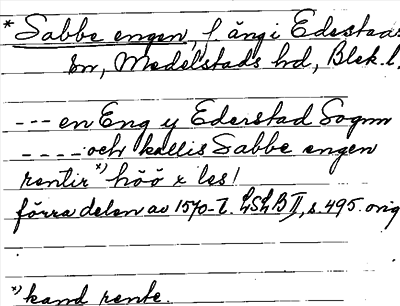 * Sabbe engen, f. äng i Edestads
sn, Medelstads hd, Blek. l.
--- en Eng y Ederstad Sognn
---- och kallis Sabbe engen
rentir *) höö x les!
förra delen av 1570-t. LSLB II, s. 495. orig
*) kand rente.